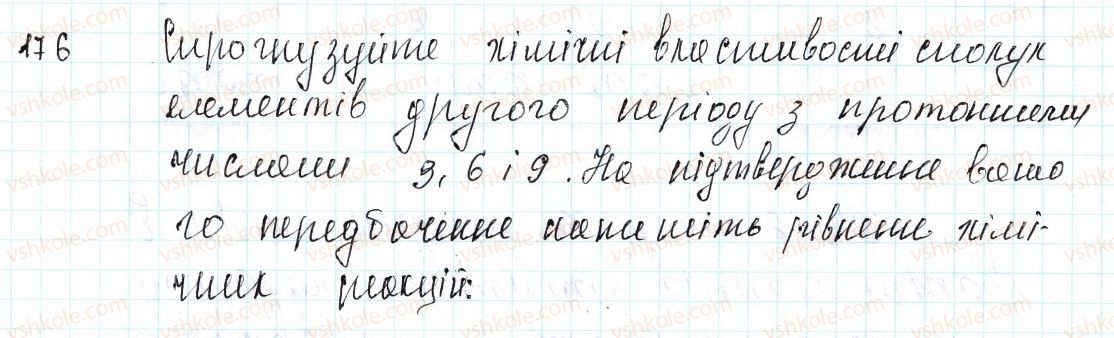 176 Спрогнузуйте хімічні властивості сполук
елементів другого періоду з протонними
числами 3, 6 і 9. На підтвердження вашо
го передбачення напишіть рівнене хімі-
чних реакцій: